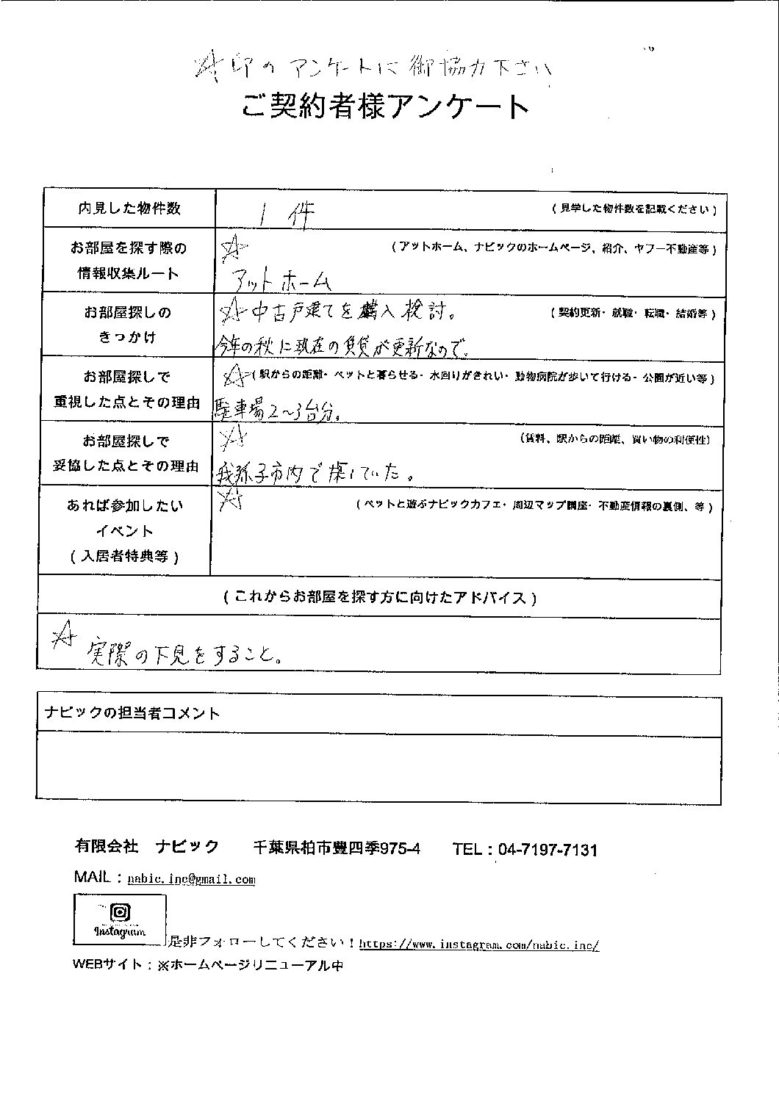 ☆印のアンケートに御協力下さい
ご契約者様アンケート
内見した物件数
1件
(見学した物件数を記載ください)
お部屋を探す際の
情報収集ルート
☆
(アットホーム、ナビックのホームページ、紹介、ヤフー不動産等)
アットホーム
お部屋探しの
きっかけ
☆中古戸建てを購入検討。
(契約更新・就職・転職・結婚等)
今年の秋に現在の賃貸が更新なので。
お部屋探しで
重視した点とその理由
☆(駅からの距離・ペットと暮らせる・水回りがきれい・動物病院が歩いて行ける・公園が近い等)
駐車場2〜3台分。
お部屋探しで
妥協した点とその理由
☆
(賃料、駅からの距離、買い物の利便性)
我孫子市内で探していた。
あれば参加したい
イベント
(入居者特典等)
☆
(ペットと遊ぶナビックカフェ・周辺マップ講座・不動産情報の裏側、等)
(これからお部屋を探す方に向けたアドバイス)
☆実際の下見をすること。
ナビックの担当者コメント
有限会社 ナビック 千葉県柏市豊四季975-4 TEL：04-7197-7131
MAIL：nabic.inc@gmail.com
Instagram
是非フォローしてください！https://www.instagram.com/nabic.inc/
WEBサイト：※ホームページリニューアル中